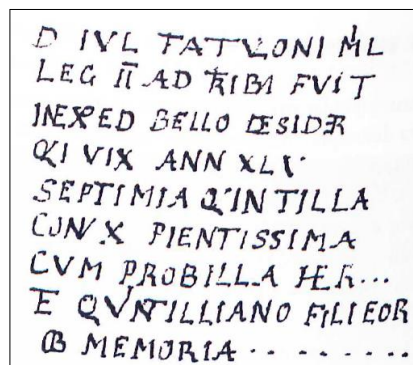 D IVL TATVLONI MIL
LEG II AD TRIBI FVIT
INEXPED BELLO DESIDER
QI VIX ANN XLV
SEPTIMIA Q'INTILLA
CONVX PIENTISSIMA
CVM PROBILLA HER...
E QVINTILLIANO FILIEOR
OB MEMORIA . . . . . . .